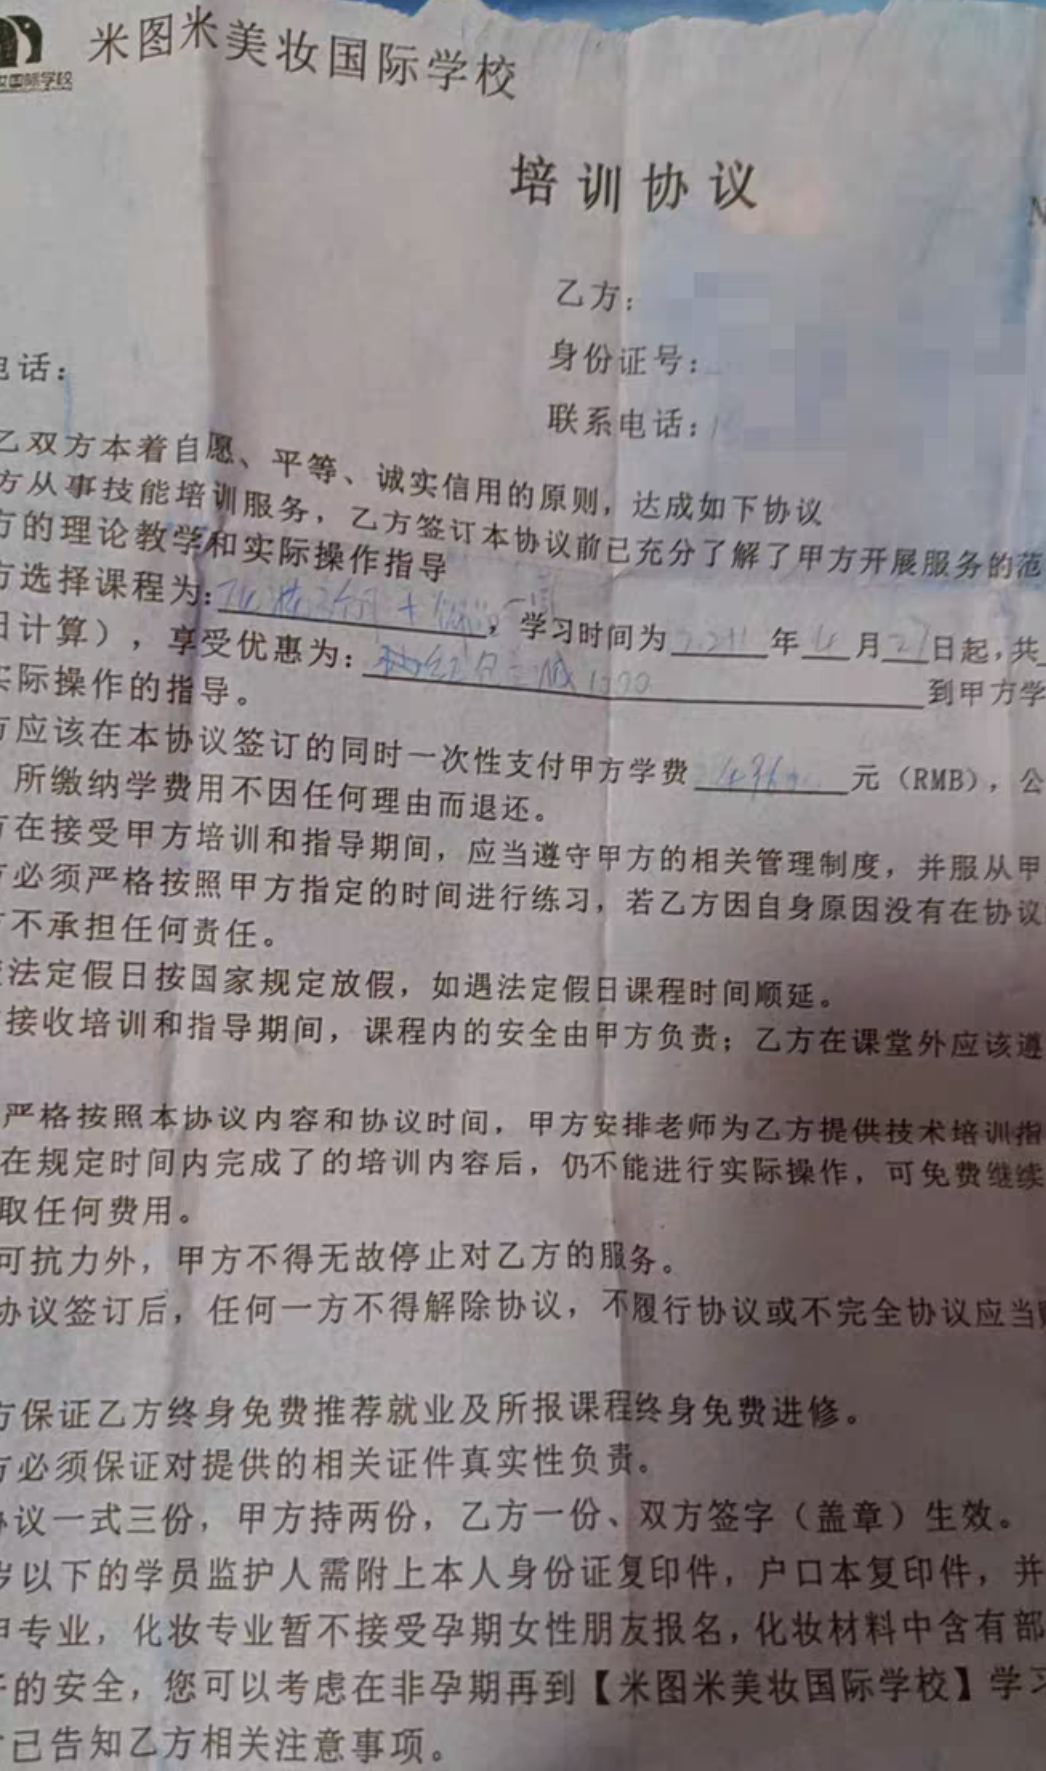 米图米美妆国际学校
国际学校
培训协议
乙方：
身份证号：
电话：
联系电话：
乙双方本着自愿、平等、诚实信用的原则，达成如下协议
方从事技能培训服务，乙方签订本协议前已充分了解了甲方开展服务的范
方的理论教学和实际操作指导
方选择课程为：，学习时间为年4月27日起，共
日计算），享受优惠为：减1000到甲方学
实际操作的指导。
方应该在本协议签订的同时一次性支付甲方学费元（RMB），公
所缴纳学费用不因任何理由而退还。
方在接受甲方培训和指导期间，应当遵守甲方的相关管理制度，并服从甲
方必须严格按照甲方指定的时间进行练习，若乙方因自身原因没有在协议
方不承担任何责任。
法定假日按国家规定放假，如遇法定假日课程时间顺延。
接收培训和指导期间，课程内的安全由甲方负责；乙方在课堂外应该遵
严格按照本协议内容和协议时间，甲方安排老师为乙方提供技术培训指
在规定时间内完成了的培训内容后，仍不能进行实际操作，可免费继续
取任何费用。
可抗力外，甲方不得无故停止对乙方的服务。
协议签订后，任何一方不得解除协议，不履行协议或不完全协议应当
方保证乙方终身免费推荐就业及所报课程终身免费进修。
方必须保证对提供的相关证件真实性负责。
协议一式三份，甲方持两份，乙方一份、双方签字（盖章）生效。
岁以下的学员监护人需附上本人身份证复印件，户口本复印件，并
甲专业，化妆专业暂不接受孕期女性朋友报名，化妆材料中含有部
的安全，您可以考虑在非孕期再到【米图米美妆国际学校】学习
已告知乙方相关注意事项。